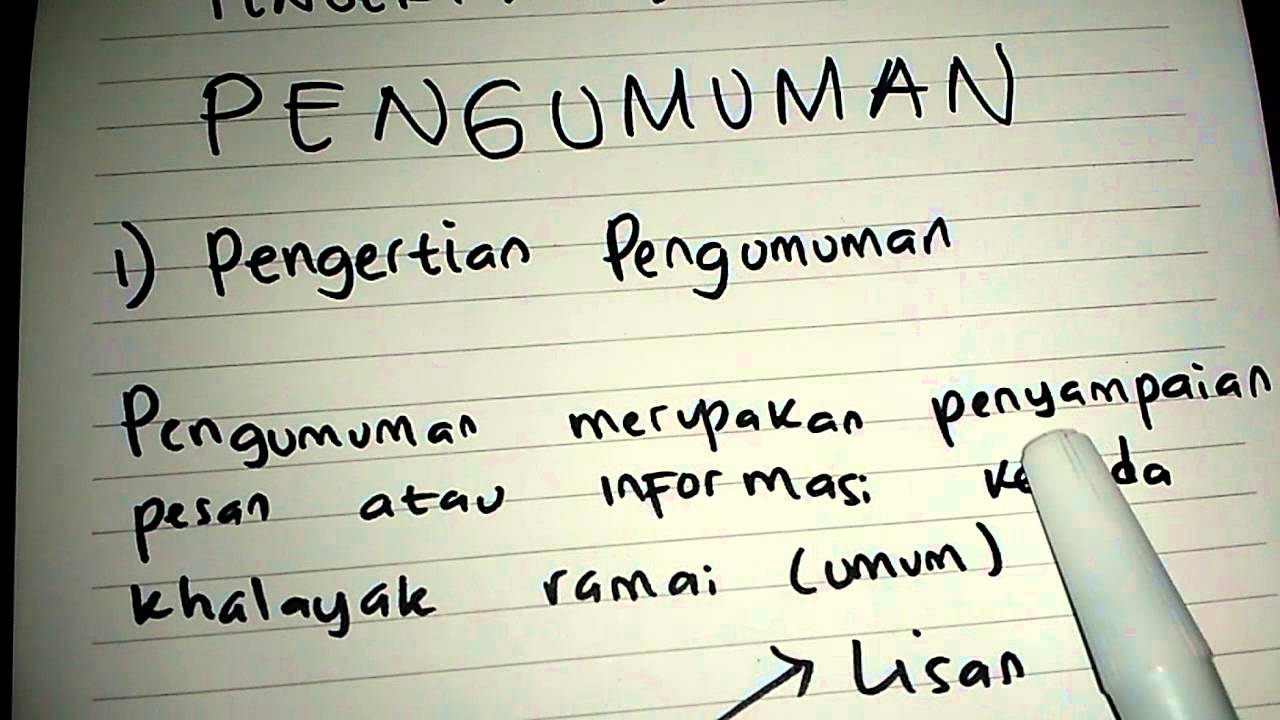 PENGUMUMAN
1) Pengertian Pengumuman
Pengumuman merupakan penyampaian
pesan atau informasi
khalayak ramai (umum)
→ Lisan